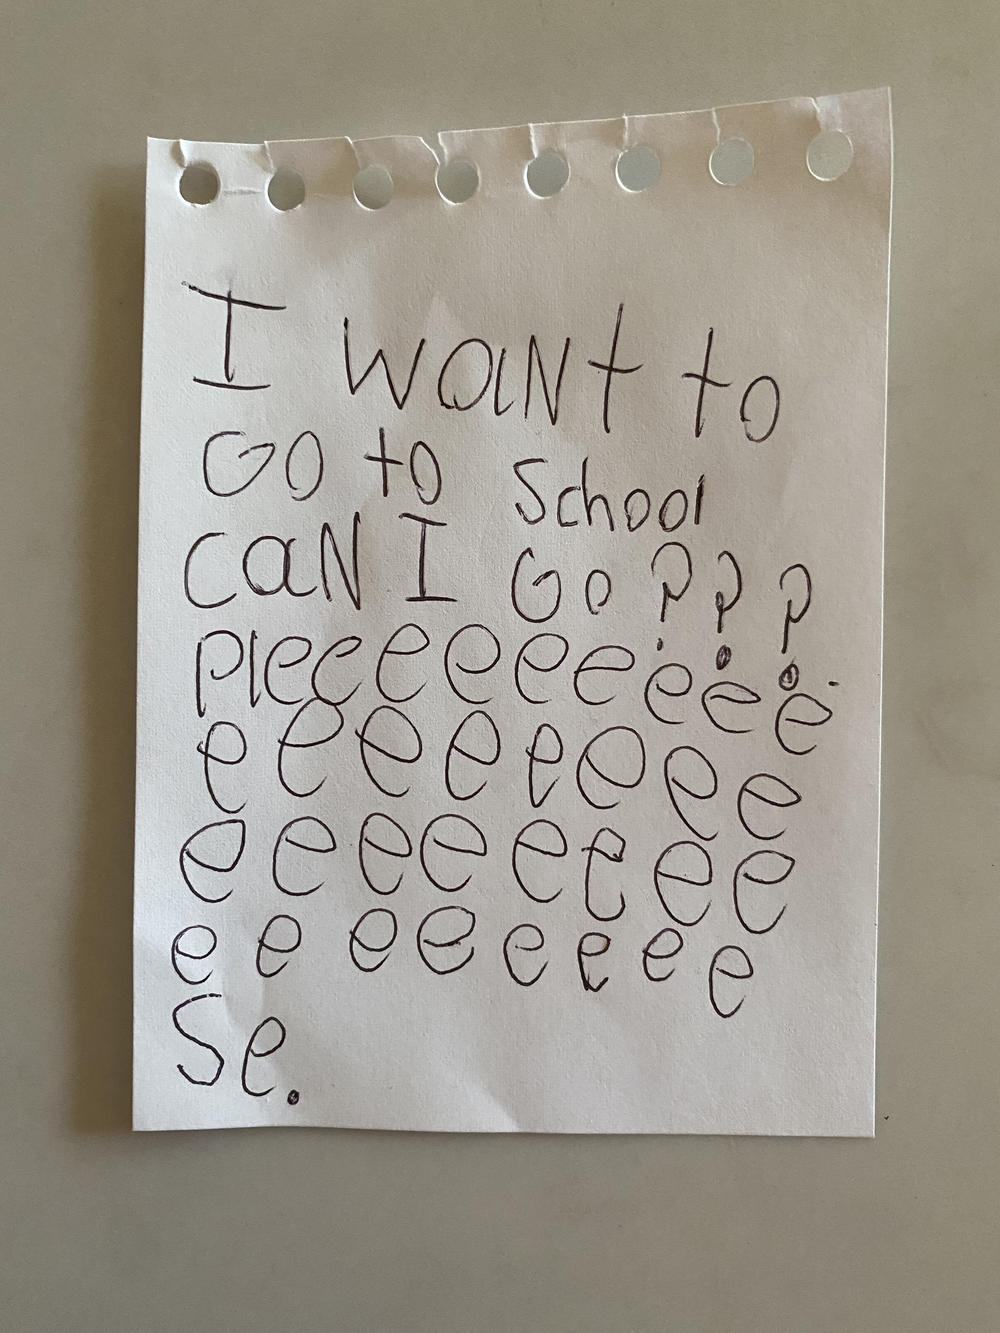 I want to
Go to School
can I Go???
pleceeeeeee
eeeeeeee
eeeeeeee
eeeeeeee
Se.